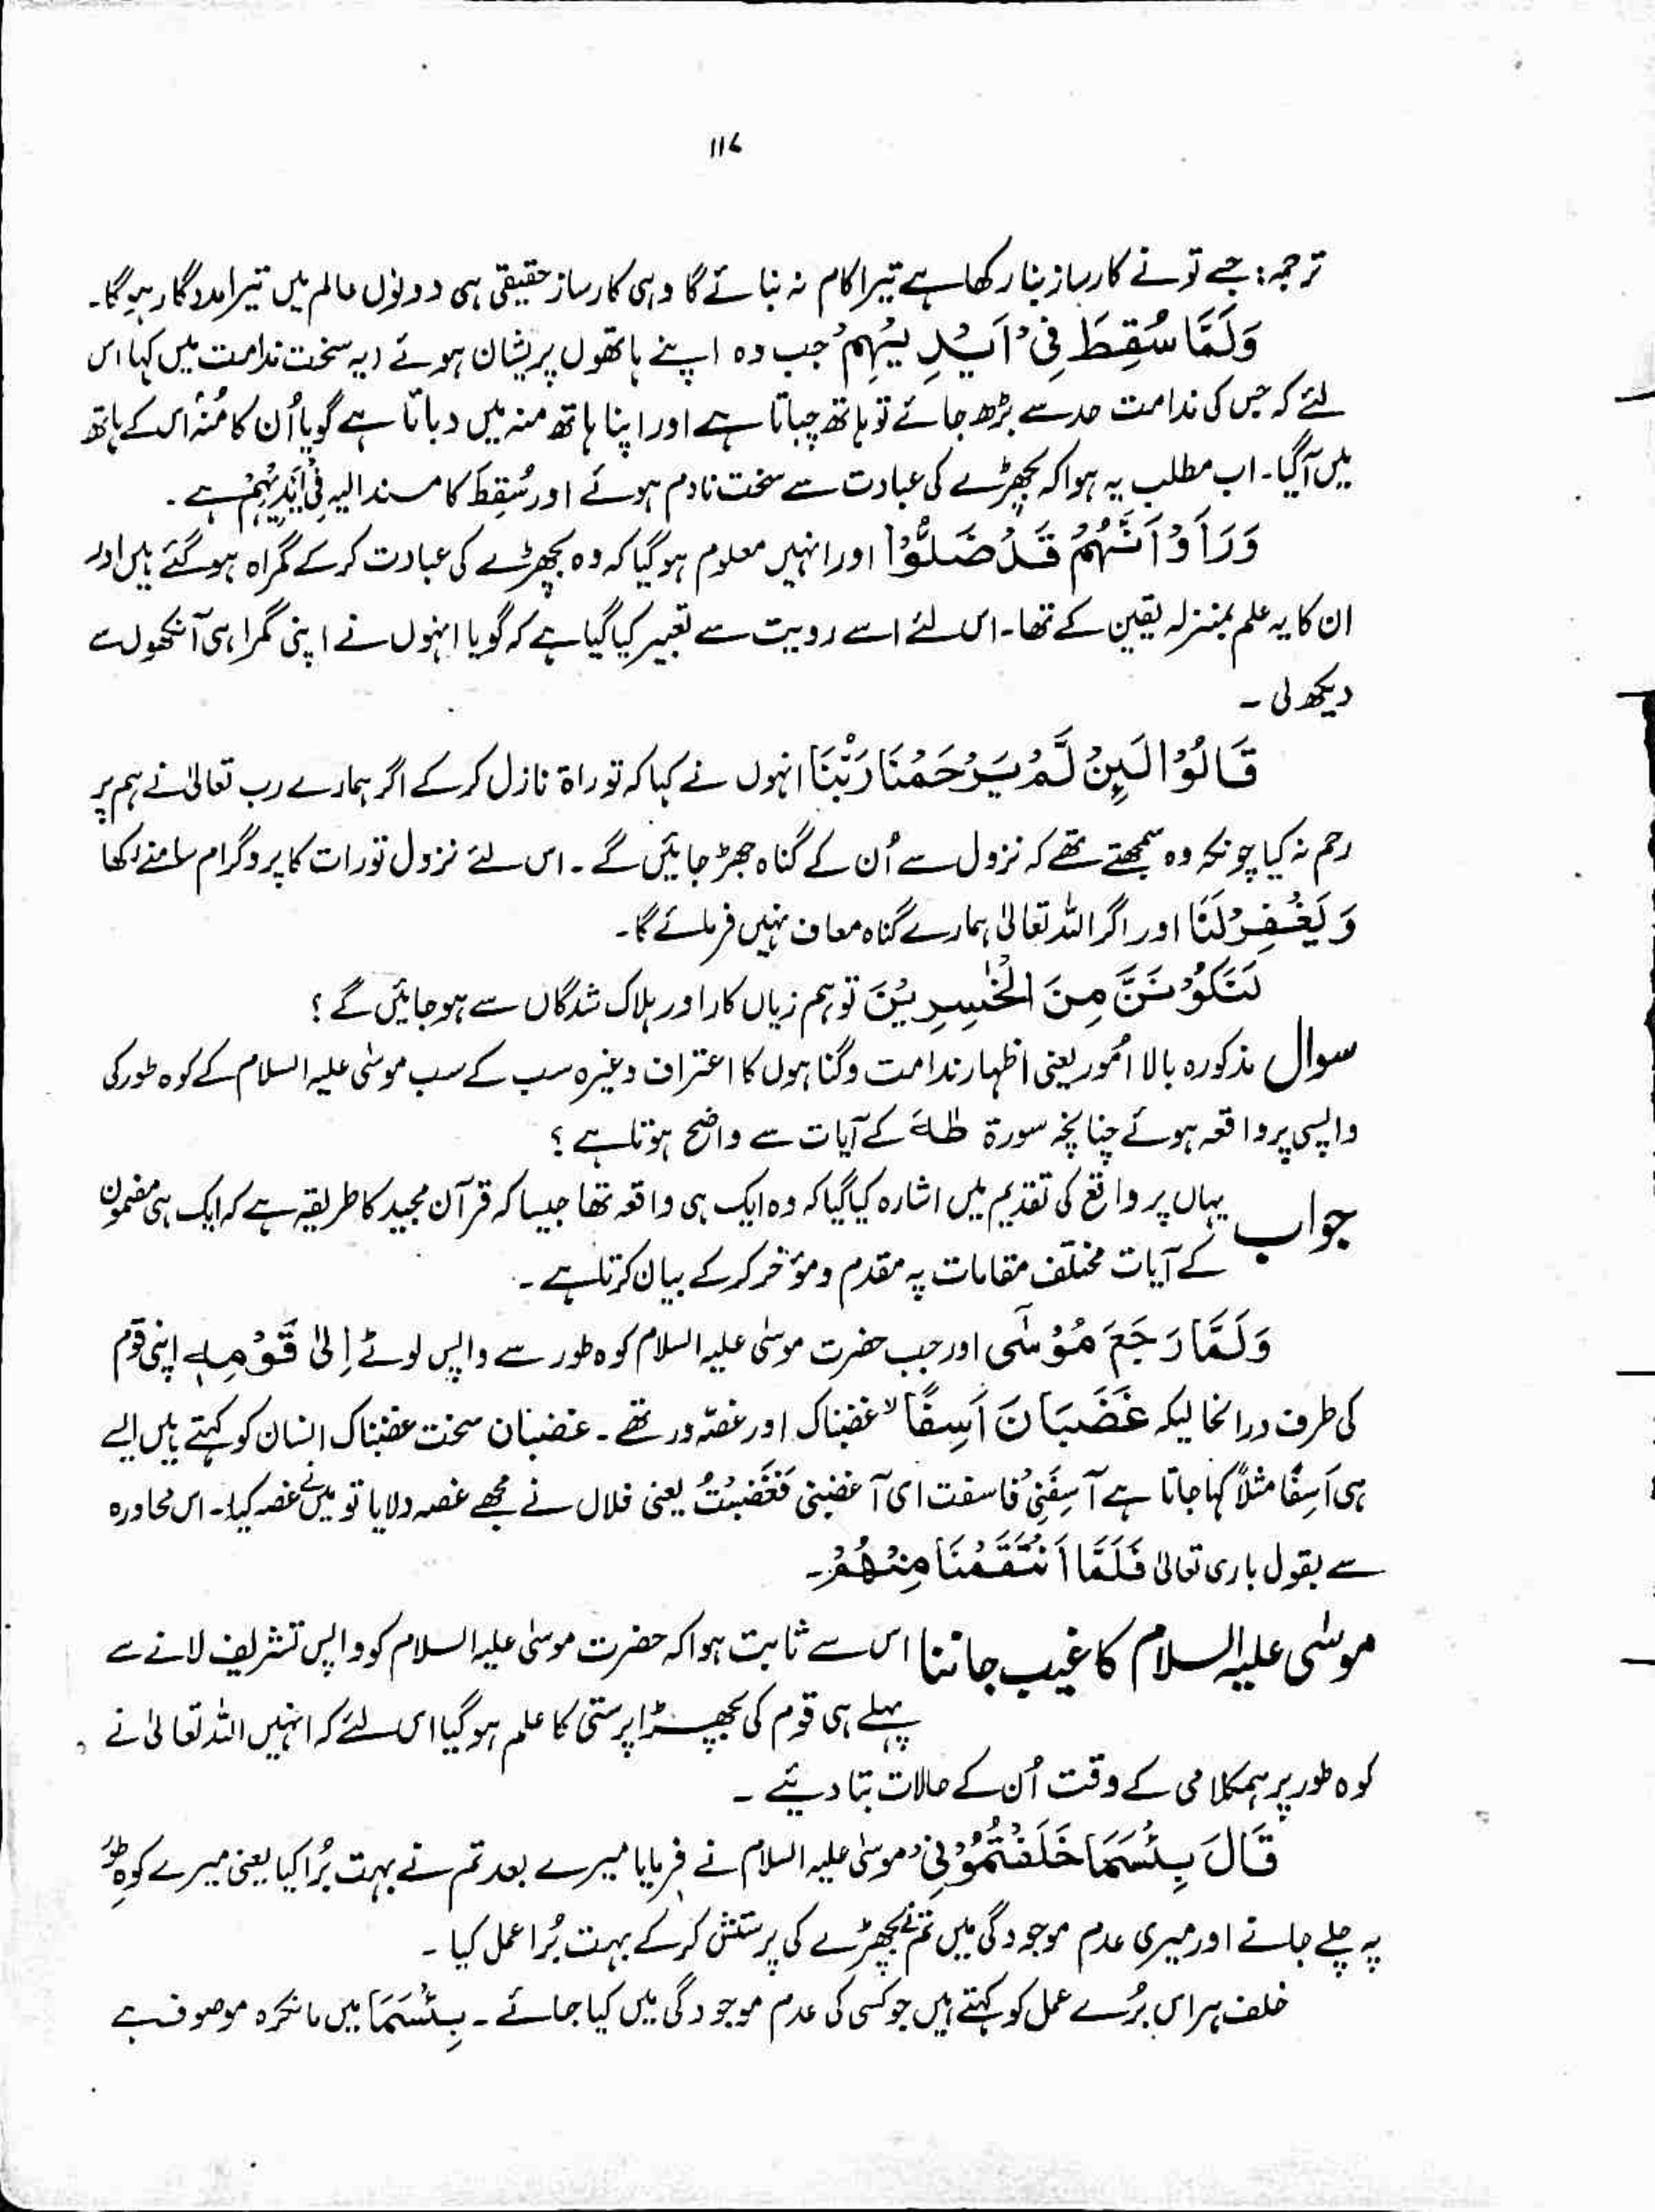 ۱۱۷
ترجمہ: جسے تو نے کارساز بنا رکھا ہے تیرا کام نہ بنائے گا وہی کارساز حقیقی ہی دونوں عالم میں تیرا مددگار ہوگا۔
وَلَمَّا سُقِطَ فِیْ اَیْدِیْہِمْ جب وہ اپنے ہاتھوں پریشان ہوئے (یہ سخت ندامت میں کہا اس
لئے کہ جس کی ندامت حد سے بڑھ جائے تو ہاتھ چباتا ہے اور اپنا ہاتھ منہ میں دباتا ہے گویا اُن کا مُنہ اس کے ہاتھ
میں آگیا۔ اب مطلب یہ ہوا کہ بچھڑے کی عبادت سے سخت نادم ہوئے اور سُقِطَ کا مسند الیہ فِیْ اَیْدِیْہِمْ ہے۔
وَرَاَوْا اَنَّہُمْ قَدْ ضَلُّوْا اور انہیں معلوم ہوگیا کہ وہ بچھڑے کی عبادت کر کے گمراہ ہو گئے ہیں اور
ان کا یہ علم بمنزلہ یقین کے تھا۔ اس لئے اسے رویت سے تعبیر کیا گیا ہے کہ گویا انہوں نے اپنی گمراہی آنکھوں سے
دیکھ لی۔
قَالُوْا لَئِنْ لَّمْ یَرْحَمْنَا رَبُّنَا انہوں نے کہا کہ توراۃ نازل کر کے اگر ہمارے رب تعالیٰ نے ہم پر
رحم نہ کیا چونکہ وہ سمجھتے تھے کہ نزول سے اُن کے گناہ جھڑ جائیں گے۔ اس لئے نزول تورات کا پروگرام سامنے رکھا
وَیَغْفِرْلَنَا اور اگر اللہ تعالیٰ ہمارے گناہ معاف نہیں فرمائے گا۔
لَنَکُوْنَنَّ مِنَ الْخٰسِرِیْنَ تو ہم زیاں کار اور ہلاک شدگاں سے ہو جائیں گے؟
سوال مذکورہ بالا اُمور یعنی اظہار ندامت و گناہوں کا اعتراف وغیرہ سب کے سب موسٰی علیہ السلام کے کوہ طور کی
واپسی پر واقعہ ہوئے چنانچہ سورۃ طٰہٰ کے آیات سے واضح ہوتا ہے؟
جواب یہاں پر واقع کی تقدیم میں اشارہ کیا گیا کہ وہ ایک ہی واقعہ تھا جیسا کہ قرآن مجید کا طریقہ ہے کہ ایک ہی مضمون
کے آیات مختلف مقامات پہ مقدم و مؤخر کر کے بیان کرتا ہے۔
وَلَمَّا رَجَعَ مُوْسٰٓی اور جب حضرت موسٰی علیہ السلام کوہ طور سے واپس لوٹے اِلٰی قَوْمِہٖ اپنی قوم
کی طرف درانحالیکہ غَضْبَانَ اَسِفًا لا غضبناک اور غصّہ ور تھے۔ غضبان سخت غضبناک انسان کو کہتے ہیں ایسے
ہی اَسِفًا مثلاً کہا جاتا ہے آسِفَنِیْ فاسفت ای آغضبنی فَغَضَبْتُ یعنی فلاں نے مجھے غصہ دلایا تو میں نے غصہ کیا۔ اس محاورہ
سے بقول باری تعالیٰ فَلَمَّا اَنْتَقَمْنَا مِنْھُمْ۔
موسٰی علیہ السلام کا غیب جاننا اس سے ثابت ہوا کہ حضرت موسٰی علیہ السلام کو واپس تشریف لانے سے
پہلے ہی قوم کی بچھڑا پرستی کا علم ہو گیا اس لئے کہ انہیں اللہ تعالیٰ نے
کوہ طور پر ہمکلامی کے وقت اُن کے حالات بتا دیئے۔
قَالَ بِئْسَمَا خَلَفْتُمُوْنِیْ موسٰی علیہ السلام نے فرمایا میرے بعد تم نے بہت بُرا کیا یعنی میرے کوہِ طور
پہ چلے جانے اور میری عدم موجودگی میں تم نے بچھڑے کی پرستش کر کے بہت بُرا عمل کیا۔
خلف ہر اس بُرے عمل کو کہتے ہیں جو کسی کی عدم موجودگی میں کیا جائے۔ بِئْسَمَا میں ما نکرہ موصوف ہے